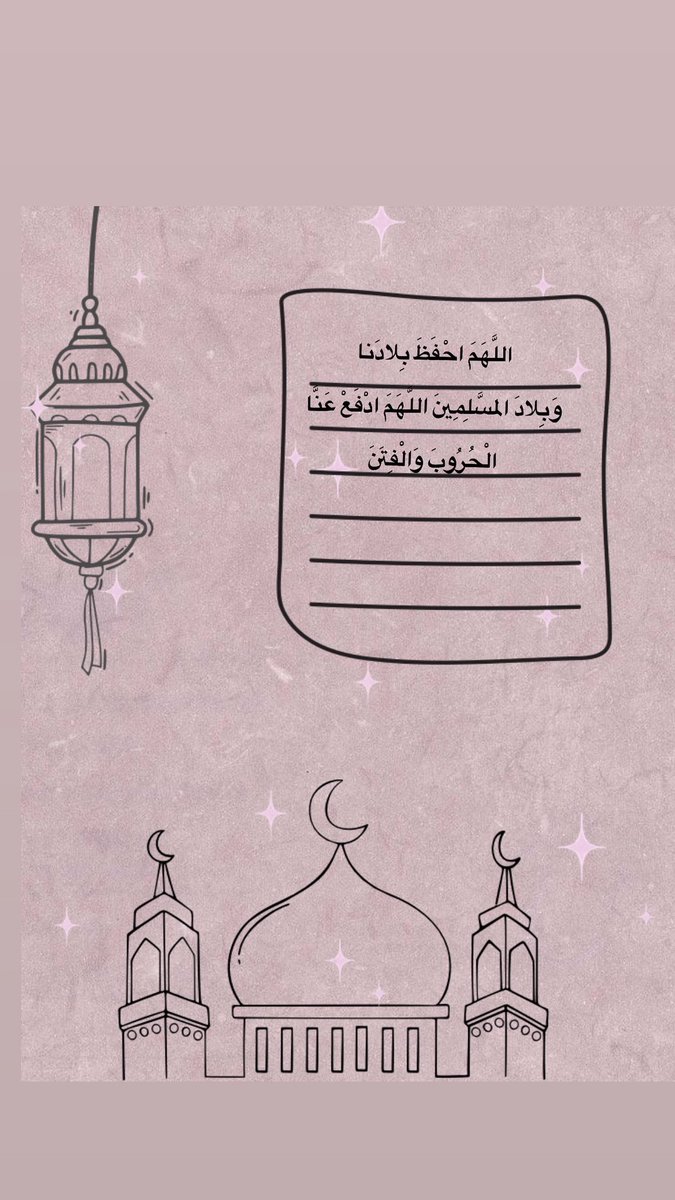 اللَّهَمَ احْفَظَ بِلادَنا
وَبِلادَ المسَّلِمِينَ اللَّهَمَ ادْفَعْ عَنَّا
الْحُرُوبَ وَالْفِتَنَ